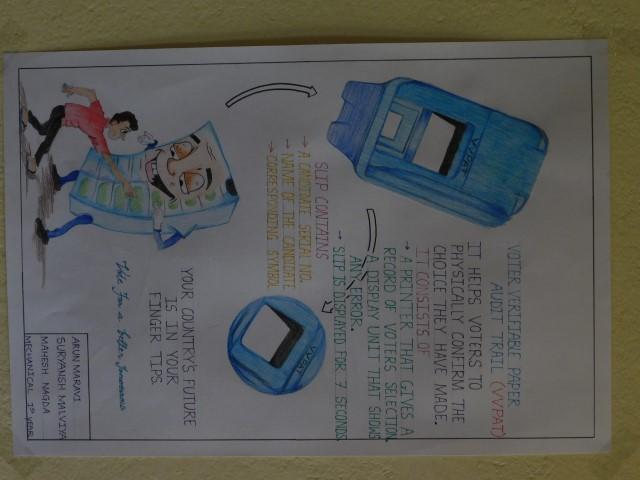 VOTER VERIFIABLE PAPER
AUDIT TRAIL (VVPAT)
IT HELPS VOTERS TO
PHYSICALLY CONFIRM THE
CHOICE THEY HAVE MADE.
IT CONSISTS OF
→ A PRINTER THAT GIVES A
RECORD OF VOTERS SELECTION.
A DISPLAY UNIT THAT SHOWS
ANY ERROR.
→ SLIP IS DISPLAYED FOR 7 SECONDS
VVPAT
SLIP CONTAINS
→ A CANDIDATE SERIAL NO.
→ NAME OF THE CANDIDATE
→ CORRESPONDING SYMBOL
VVPAT
YOUR COUNTRY'S FUTURE
IS IN YOUR
FINGER TIPS.
Vote For a better Tomorrow
ARUN MARAVI
SURYANSH MALVIYA
MAHESH NAGDA
MECHANICAL 1st YEAR